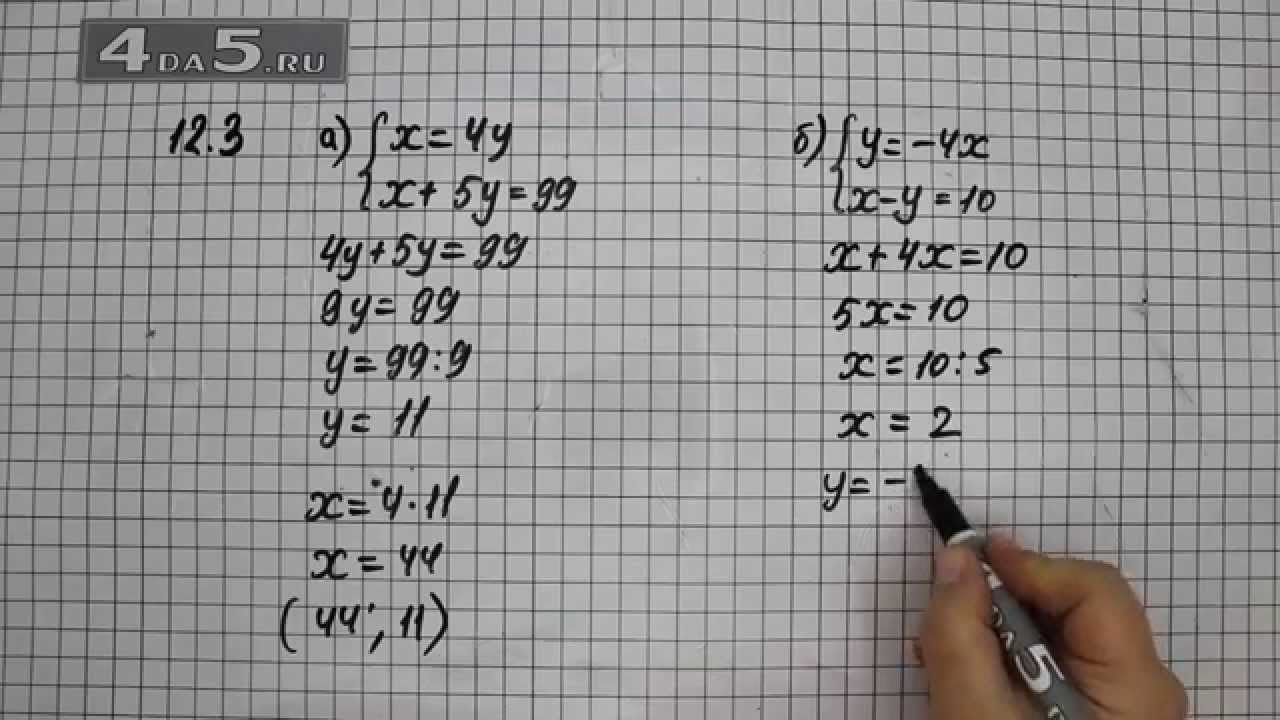 4DA5.RU
12.3
а) { x = 4y
x + 5y = 99
4y + 5y = 99
9y = 99
y = 99 : 9
y = 11
x = 4 · 11
x = 44
(44; 11)
б) { y = -4x
x - y = 10
x + 4x = 10
5x = 10
x = 10 : 5
x = 2
y = -